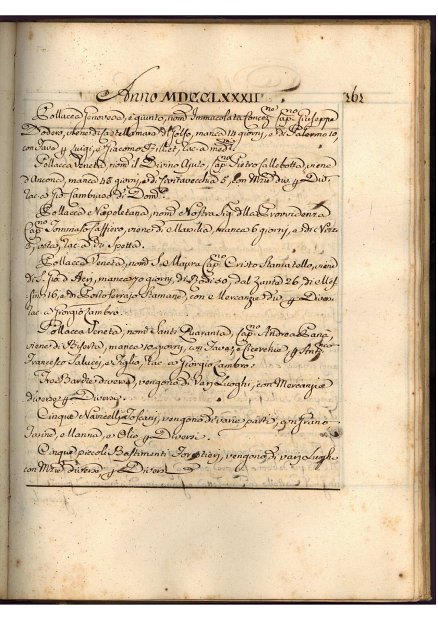 Anno MDCCLXXXII 161
Pollacca Genovese, è giunto, nom.ª Immacolata Concez.ne Cap.no Giuseppe
Dodero, viene di Castellamare di Golfo, manca 14 giorni, e di Palermo 10,
con Fava p Luigi, e Giacomo Fillet, rac. a med.i
Pollacca Veneta, nom. il Divino Ajuto, Cap.no Pietro Sallebotta, viene
d'Ancona, manca 45 giorni, e di Civitavecchia 5, con Mzie div. p Div.
rac. a Gio
Pollacca Napoletana, nom.ª Nostra Sig.ª della Provvidenza
Cap.no Tommaso Caffiero, viene di Marsilia, manca 6 giorni, e di
rac. a di Spetta.
Pollacca Veneta, nom. S. Maura Cap.no Cristo Stamatello, viene
di S. Gio. d'Acri, manca 70 giorni, di Rodi 50, dal Zante 26, di Mes-
sina 16, e di Portoferrajo Stamane, con e Mercanzie div. p Diversi
rac. a Giorgio Zambro.
Pollacca Veneta, nom. Santi Quaranta, Cap.no Andrea Pana,
viene di Biserta, manca 20 giorni, con Fave, e Cicerchie p
Francesco Salucci, e Figlio, rac. a Giorgio Zambro.
Tre Barche diverse, vengono di Varj Luoghi, con Mercanzie
diverse p Diversi.
Cinque Navicelli Toscani, vengono di varie parti, con Grano
Farine, e Manna, e Olio p Diversi.
Cinque piccoli Bastimenti Forestieri, vengono di varj Luoghi
con Mzie diverse p Diversi